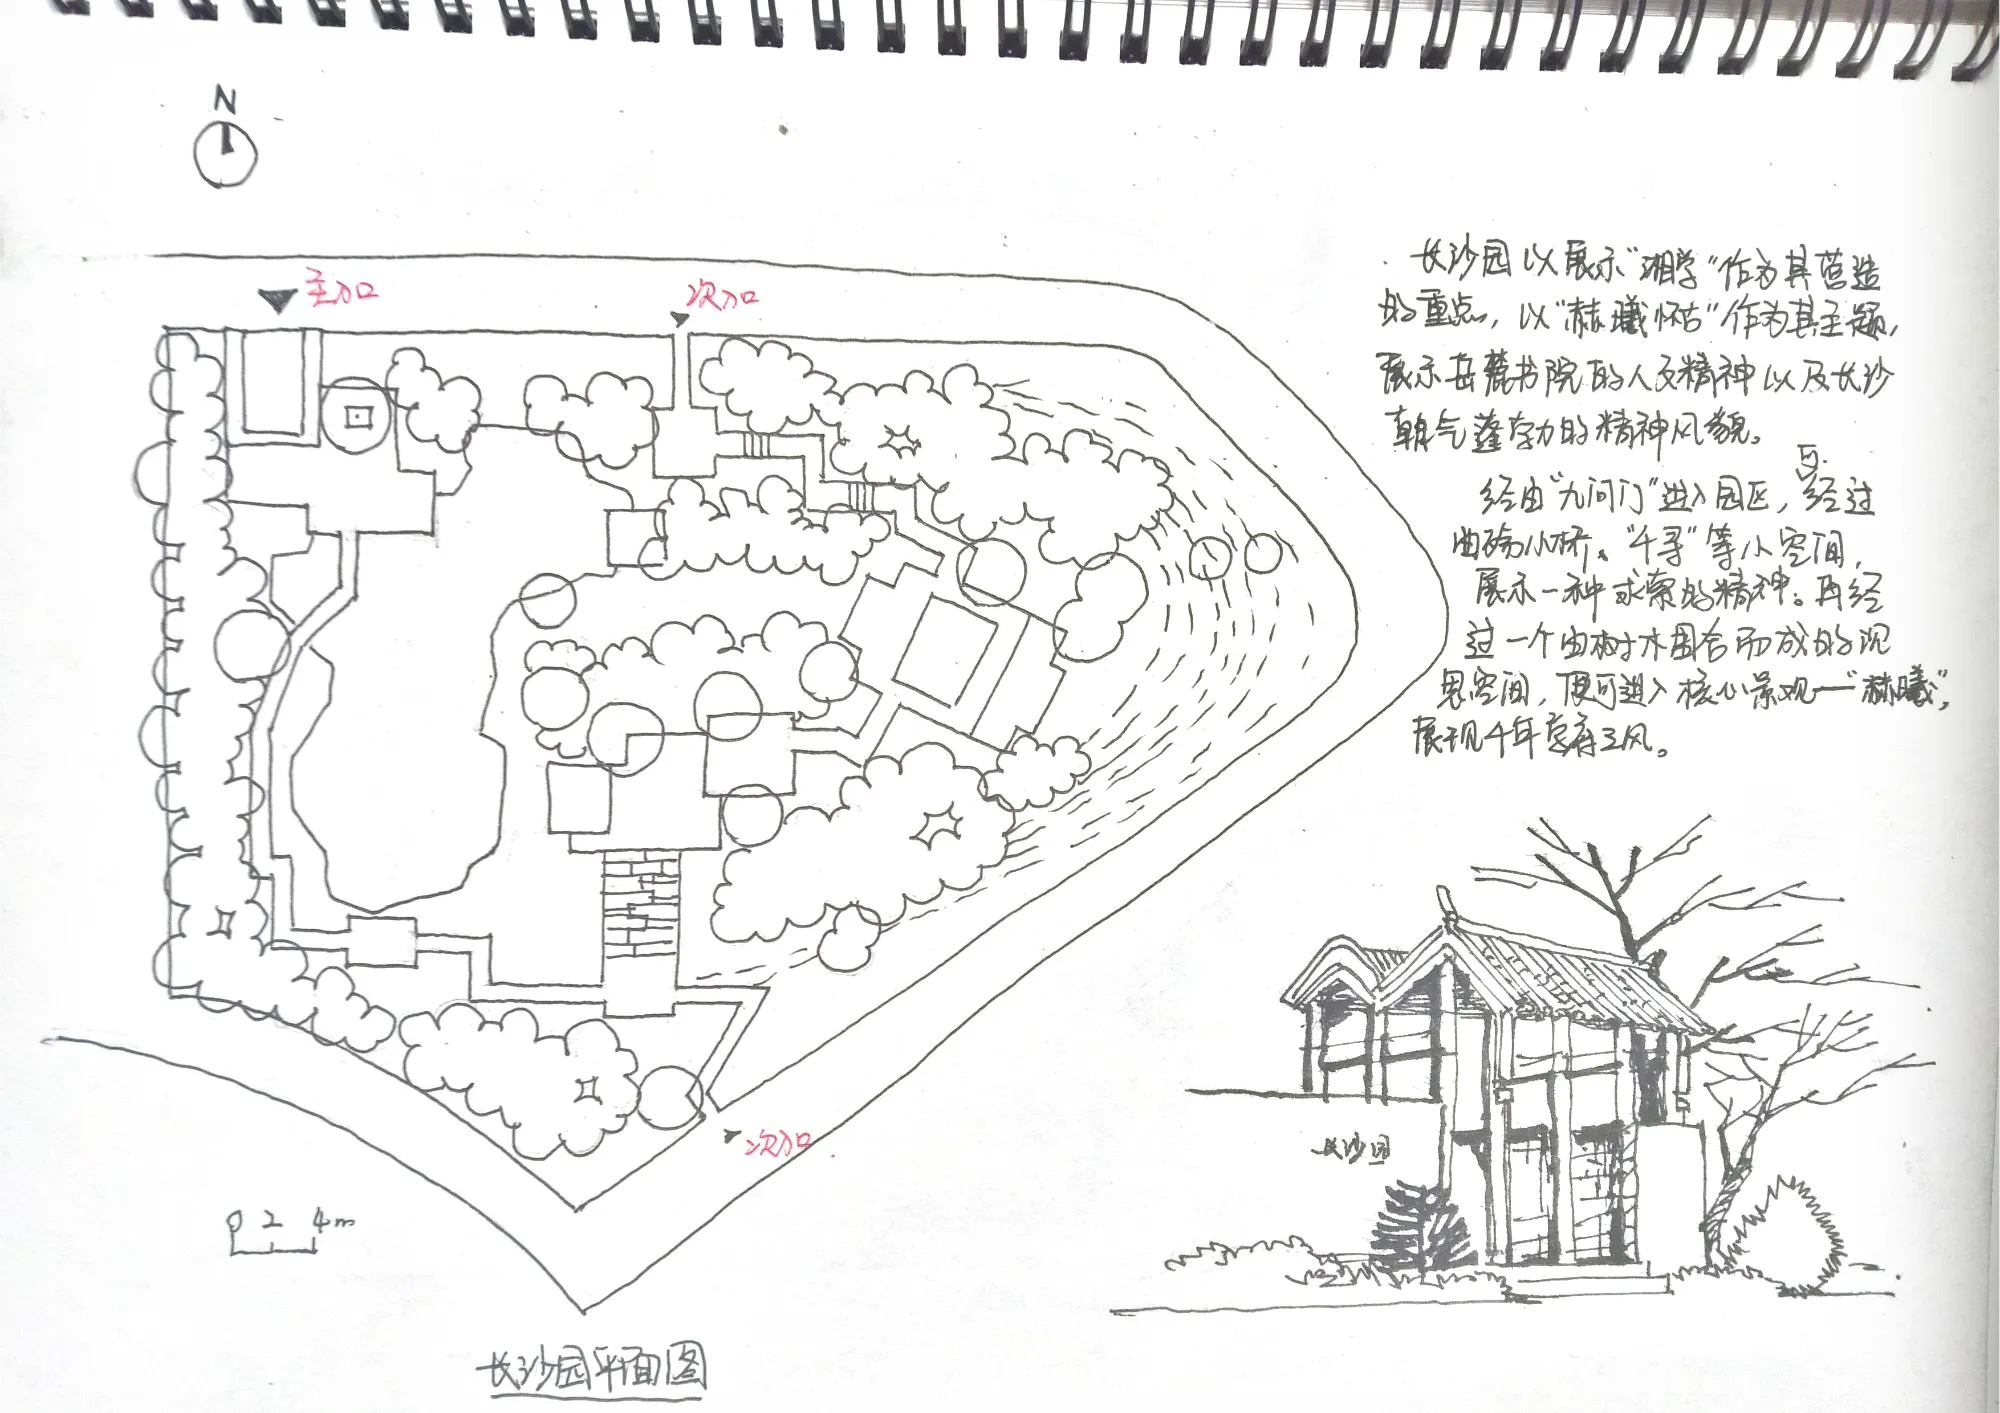 N
主入口
次入口
长沙园以展示“湘学”作为其营造
的重点，以“赫曦怀古”作为其主题，
展示岳麓书院的人文精神以及长沙
朝气蓬勃的精神风貌。
经由“九问门”进入园区，再经过
曲桥小桥、“千寻”等小空间，
展示一种求索的精神。再经
过一个由树木围合而成的沉
思空间，便可进入核心景观——“赫曦”，
展现千年学府之风。
长沙园
次入口
0 2 4m
长沙园平面图